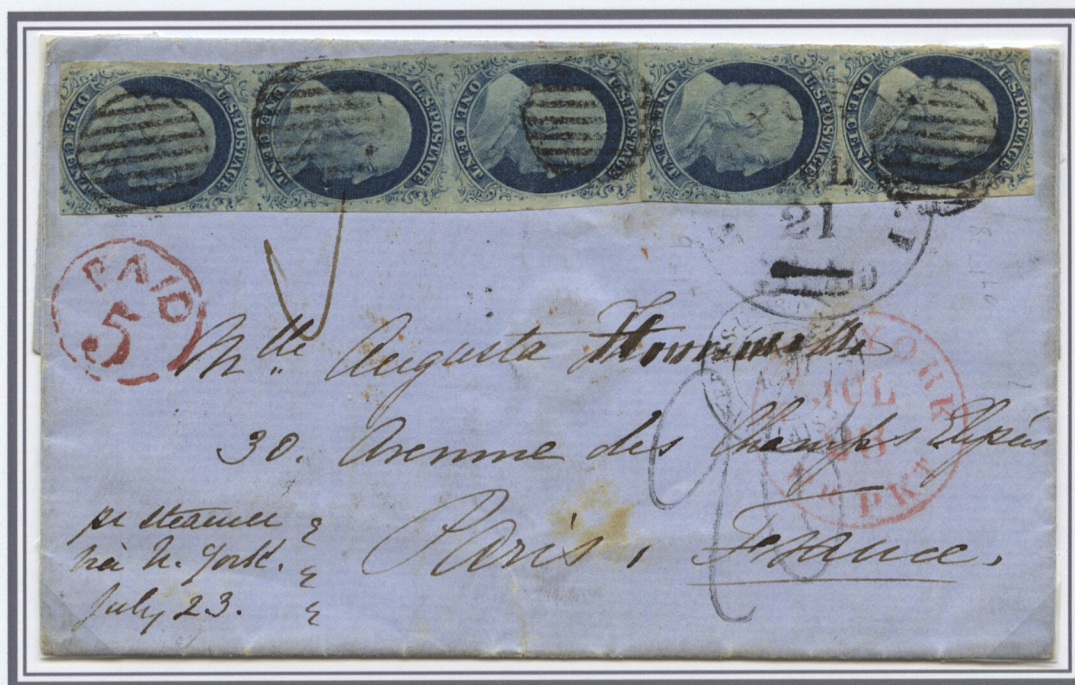 U.S. POSTAGE ONE CENT
U.S. POSTAGE ONE CENT
U.S. POSTAGE ONE CENT
U.S. POSTAGE ONE CENT
U.S. POSTAGE ONE CENT
21
PAID
5
YORK
JUL
PKT
Mlle Augusta
30. Avenue des Champs Elysées
Paris, France.
pr steamer
via N. York.
July 23.